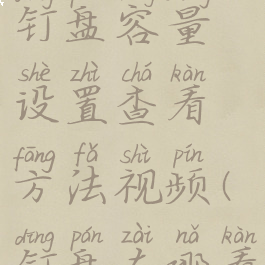 钉盘容量
shè zhì chá kàn
设置查看
fāng fǎ shì pín
方法视频(
dīng pán zài nǎ kàn
钉盘在哪看